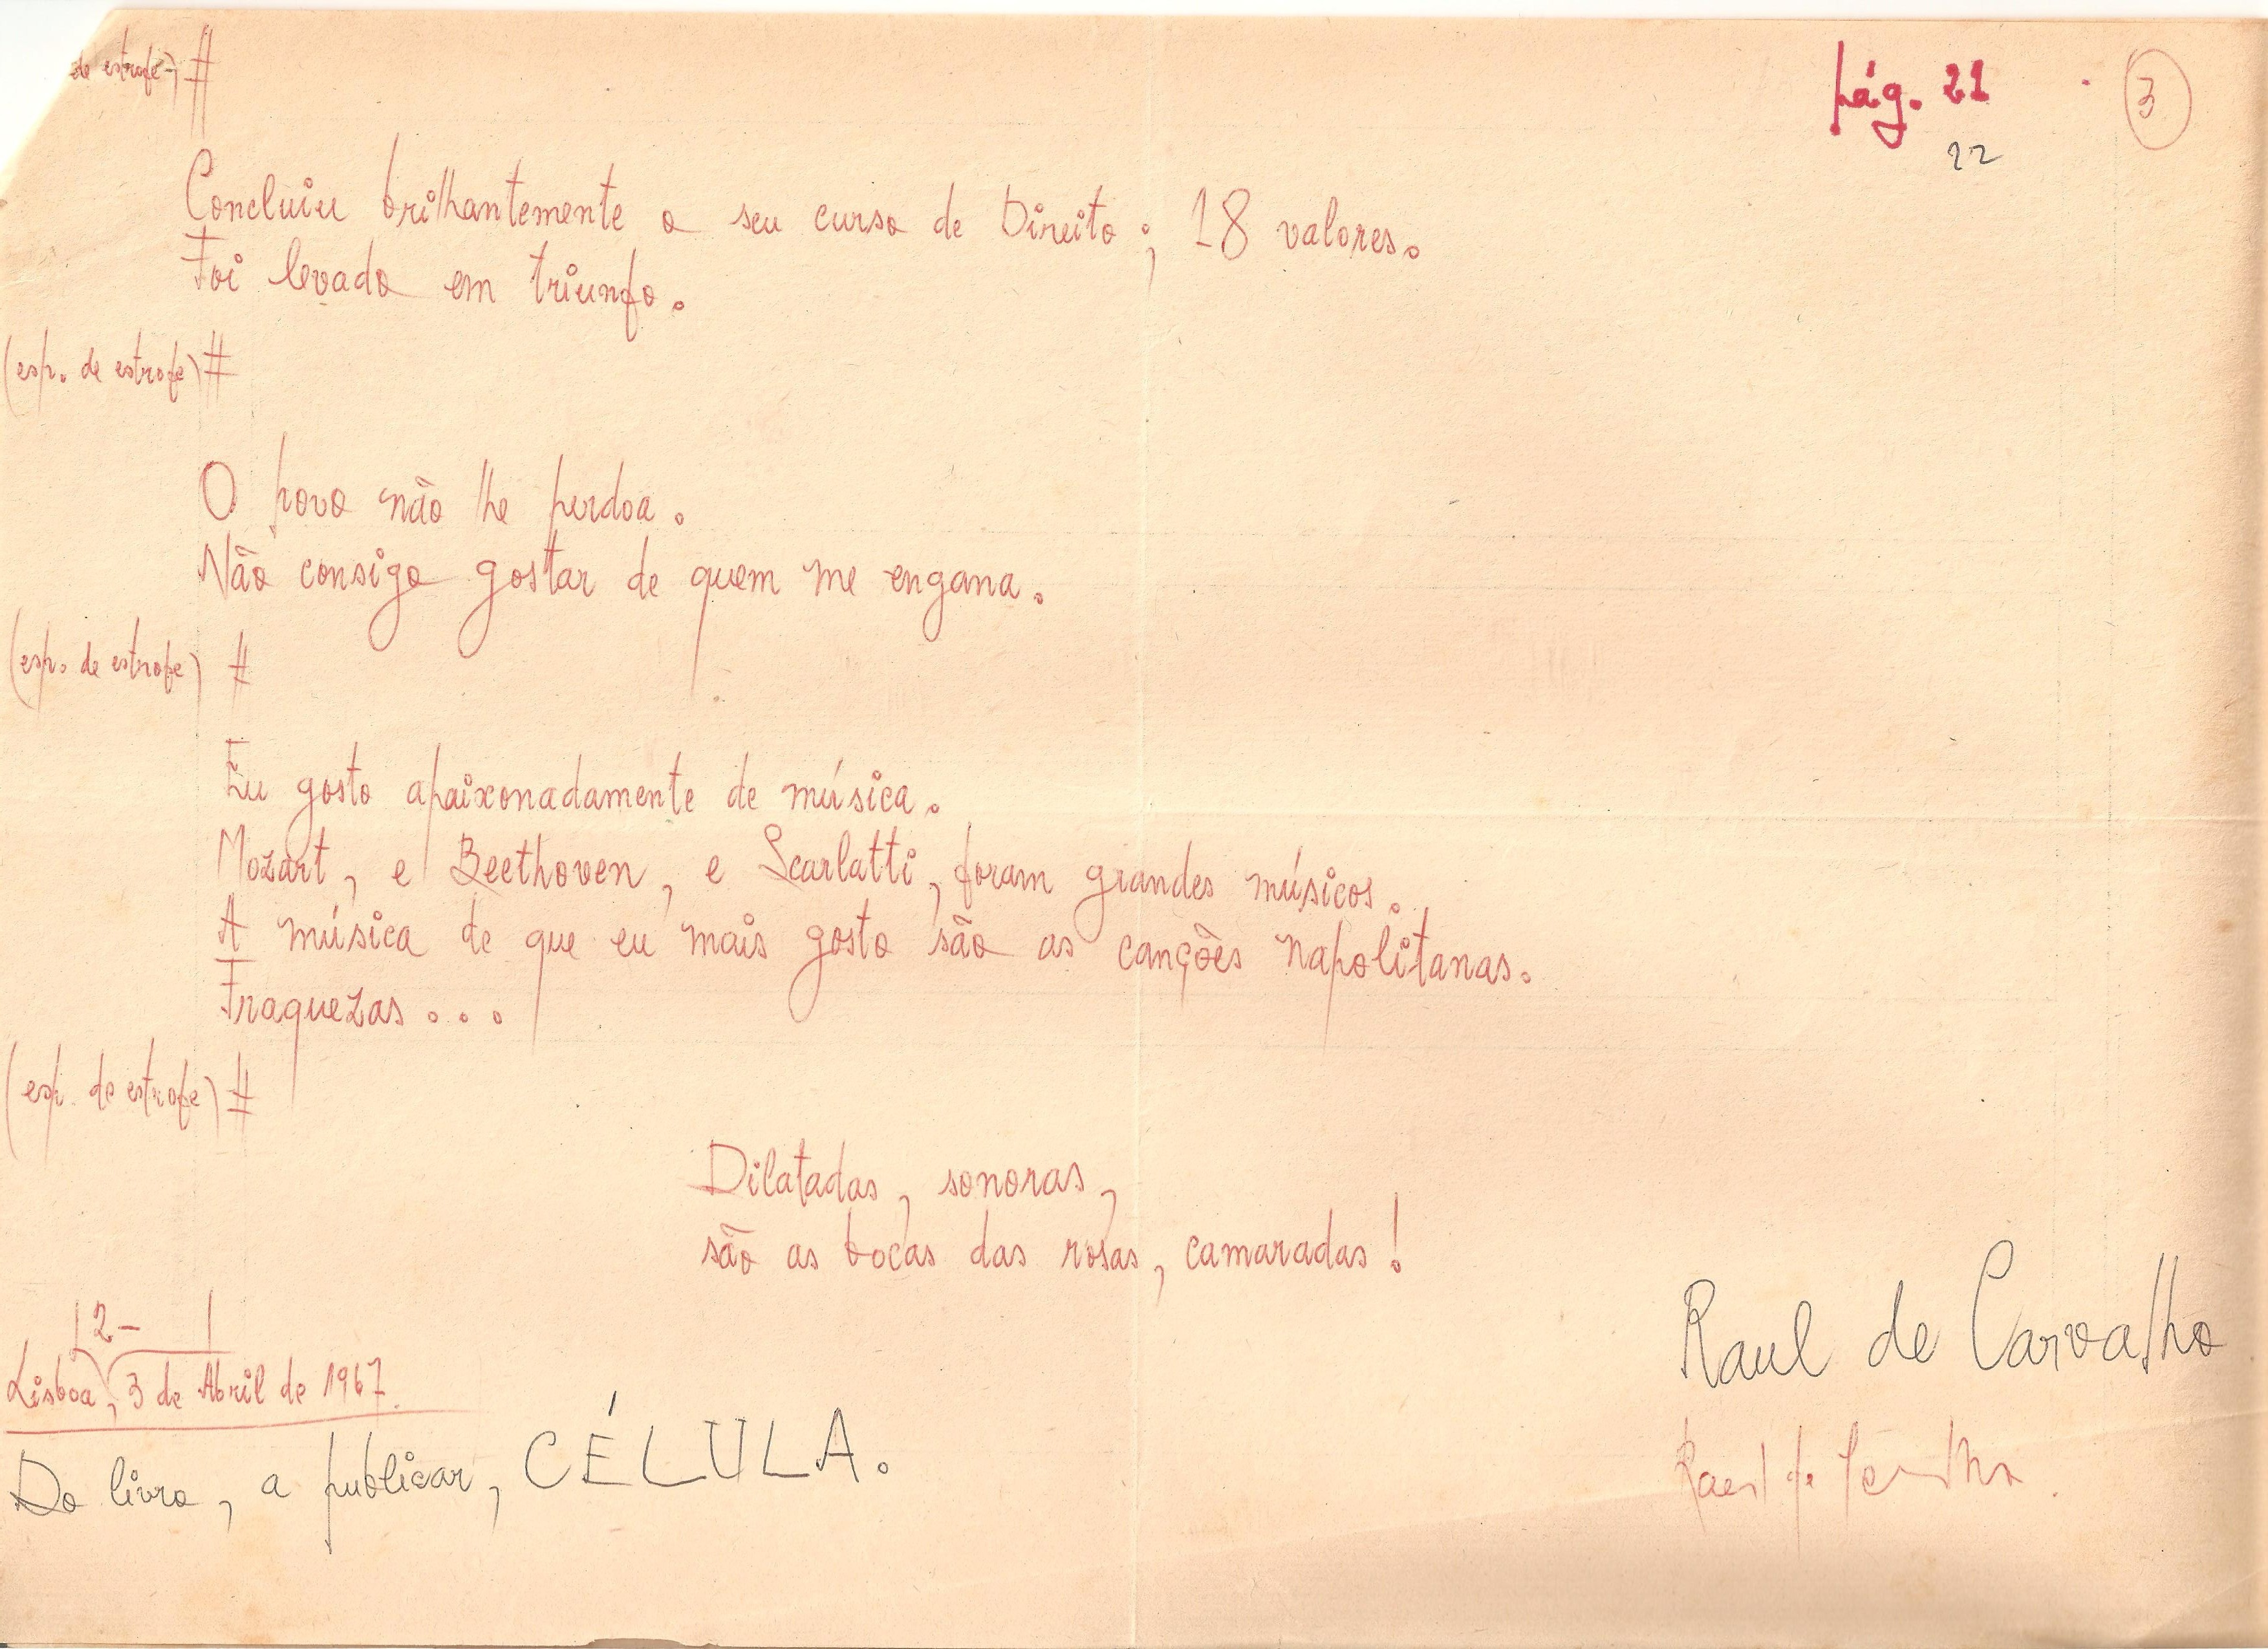 de estrofe) #
pág. 21
3
22
Concluiu brilhantemente o seu curso de Direito; 18 valores.
Foi levado em triunfo.
(esp. de estrofe) #
O povo não lhe perdoa.
Não consigo gostar de quem me engana.
(esp. de estrofe) #
Eu gosto apaixonadamente de música.
Mozart, e Beethoven, e Scarlatti, foram grandes músicos.
A música de que eu mais gosto são as canções napolitanas.
Fraquezas...
(esp. de estrofe) #
Dilatadas, sonoras,
são as bocas das rosas, camaradas!
2-
Lisboa, 3 de Abril de 1967.
Raul de Carvalho
Do livro, a publicar, CÉLULA.
Raul de Carvalho.